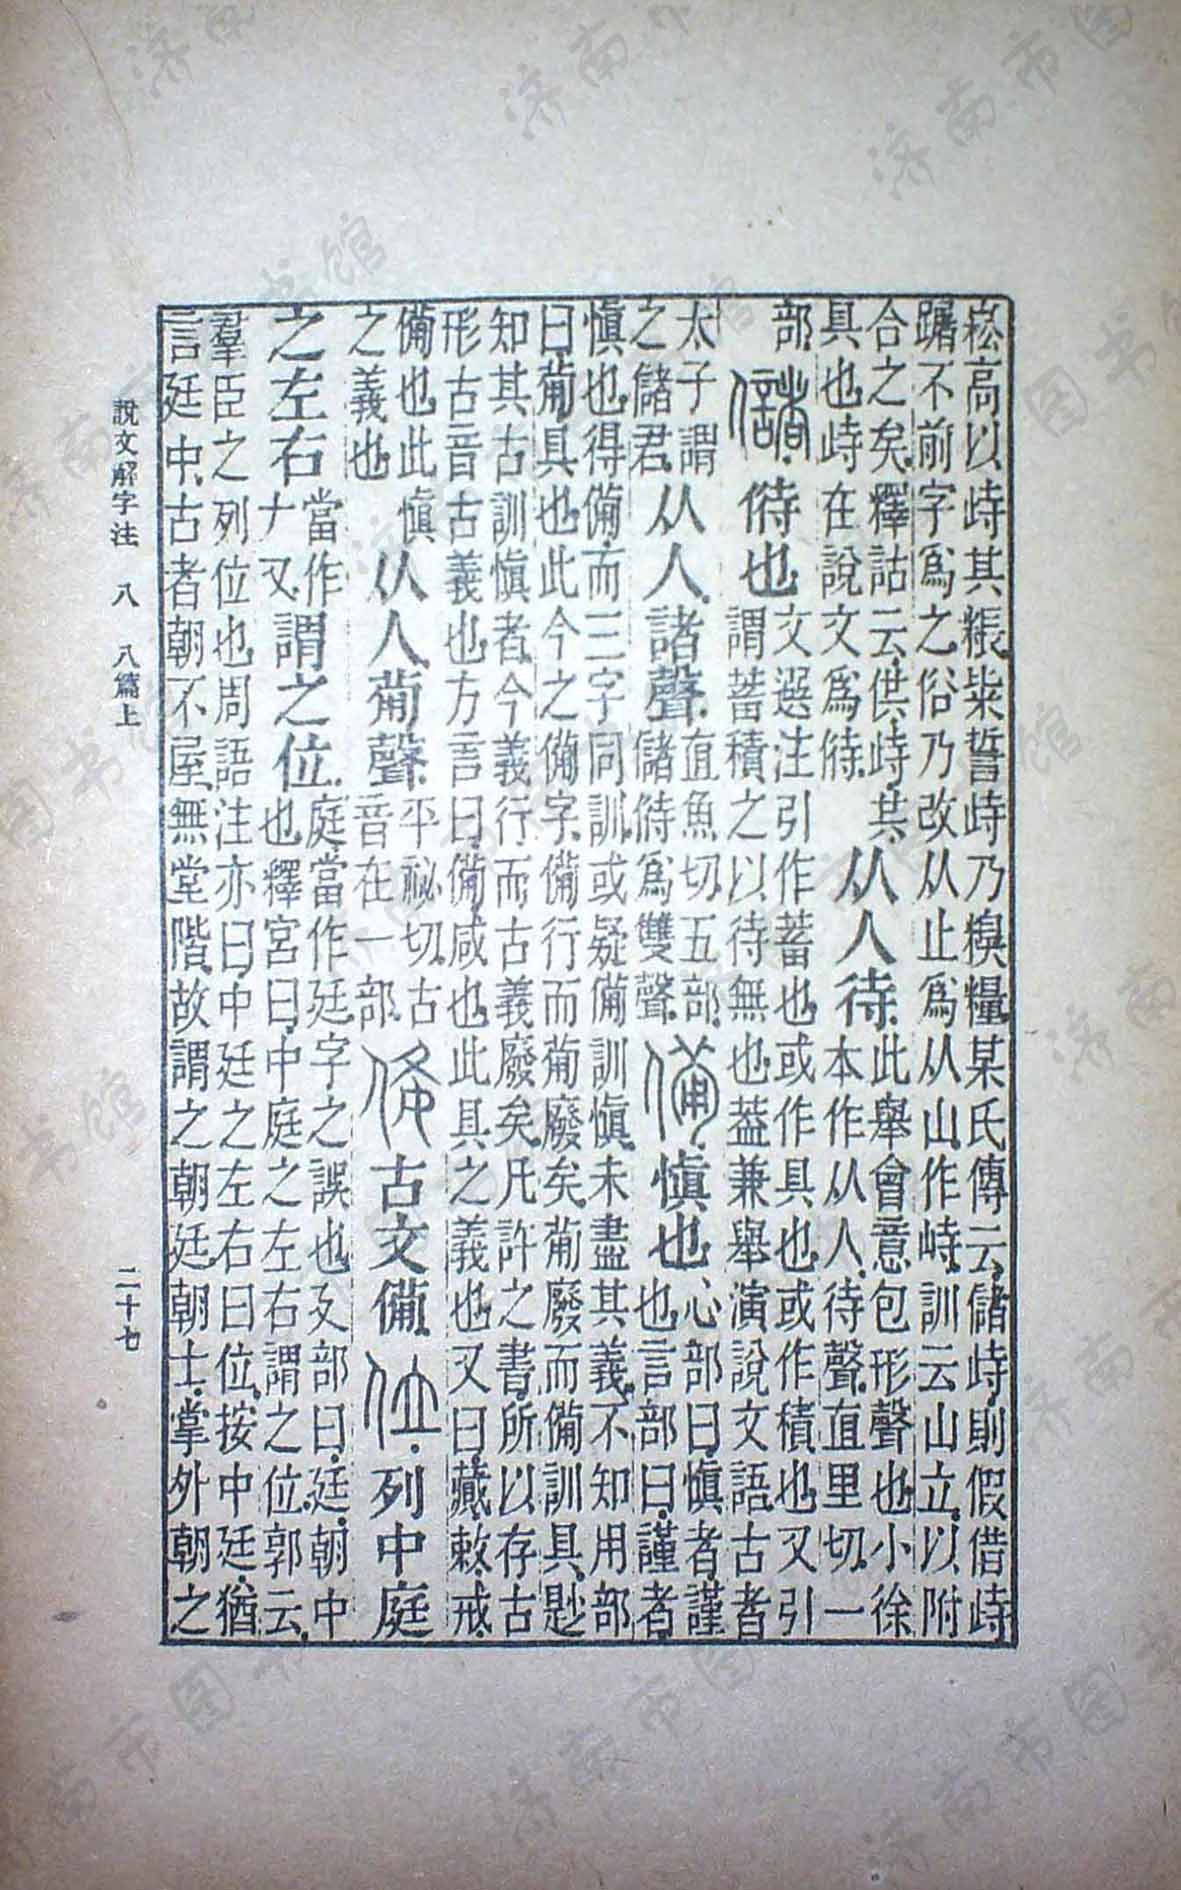 崧高以峙其粻粊誓峙乃糗糧某氏傳云儲峙則假借峙
躇不前字爲之俗乃改从止爲从山作峙訓云山立以附
合之矣釋詁云供峙共
具也峙在說文爲偫
从人待
此舉會意包形聲也小徐
本作从人待聲直里切一
部
儲偫也
文選注引作蓄也或作具也或作積也又引
謂蓄積之以待無也葢兼舉演說文語古者
太子謂
之儲君
从人諸聲
直魚切五部
儲偫爲雙聲
僃愼也
心部曰愼者謹
也言部曰謹者
愼也得僃而三字同訓或疑僃訓愼未盡其義不知用部
曰葡具也此今之僃字僃行而葡廢矣葡廢而僃訓具尟
知其古訓愼者今義行而古義廢矣凡許之書所以存古
形古音古義也方言曰僃咸也此具之義也又曰蕆敕戒
僃也此愼
之義也
从人葡聲
平祕切古
音在一部
古文僃
位列中庭
之左右
當作
𠂇又
謂之位
庭當作廷字之誤也廴部曰廷朝中
也釋宮曰中庭之左右謂之位郭云
羣臣之列位也周語注亦曰中廷之左右曰位按中廷猶
言廷中古者朝不屋無堂階故謂之朝廷朝士掌外朝之
說文解字注 八 八篇上 二十七
济南市图书馆